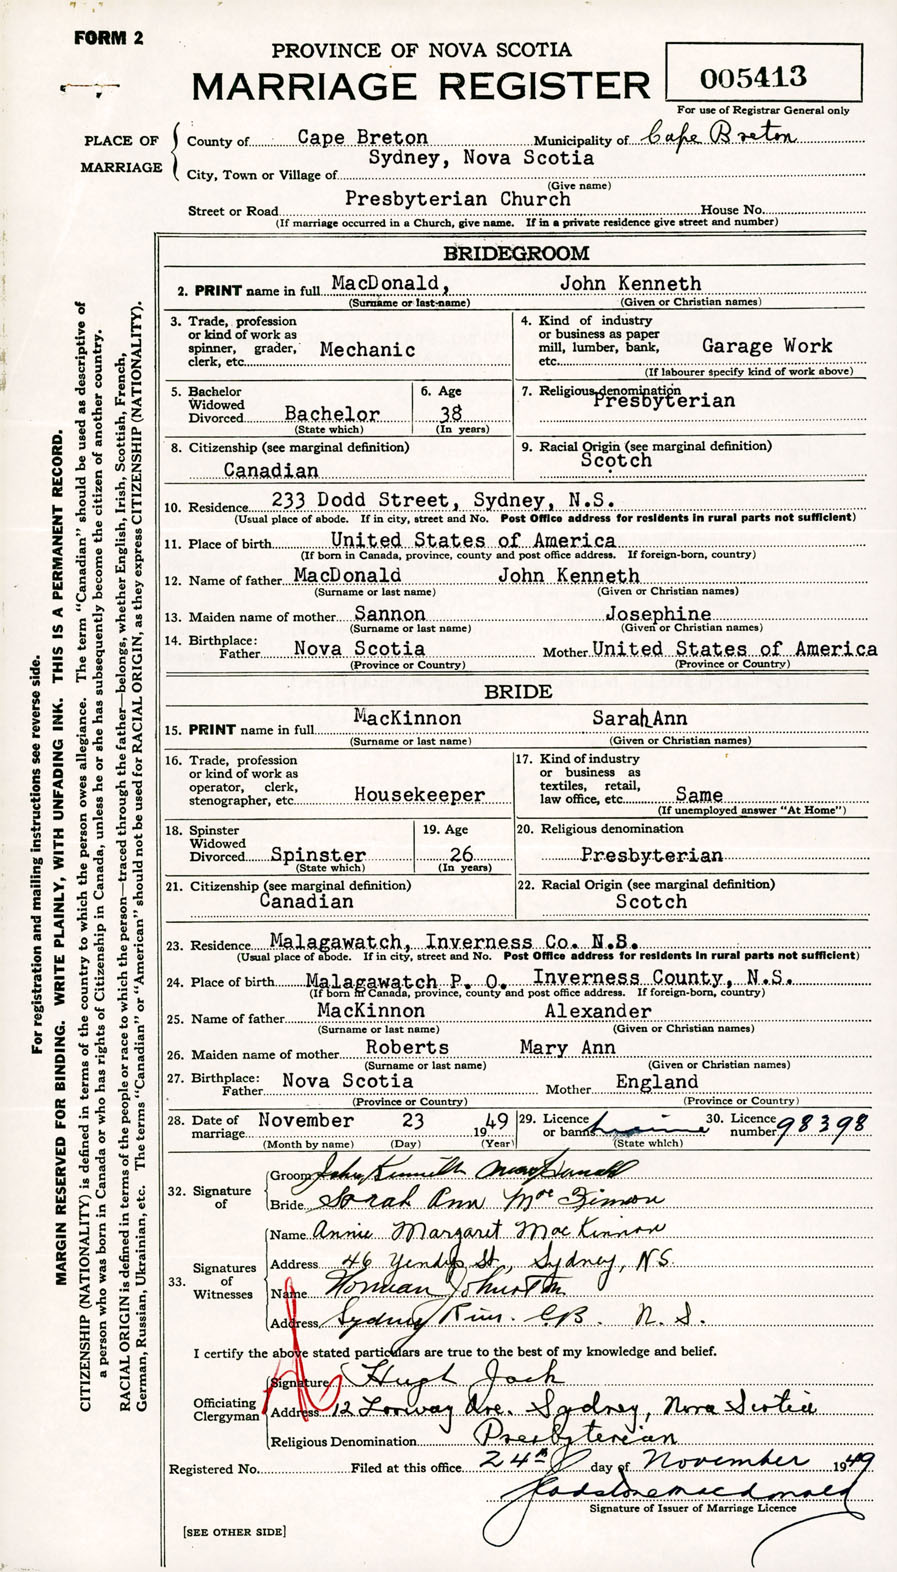 FORM 2
PROVINCE OF NOVA SCOTIA
MARRIAGE REGISTER
005413
For use of Registrar General only
PLACE OF MARRIAGE
County of Cape Breton Municipality of Cape Breton
City, Town or Village of Sydney, Nova Scotia
(Give name)
Street or Road Presbyterian Church House No.
(If marriage occurred in a Church, give name. If in a private residence give street and number)
BRIDEGROOM
2. PRINT name in full MacDonald, John Kenneth
(Surname or last name) (Given or Christian names)
3. Trade, profession or kind of work as spinner, grader, clerk, etc. Mechanic
4. Kind of industry or business as paper mill, lumber, bank, etc. Garage Work
(If labourer specify kind of work above)
5. Bachelor Widowed Divorced Bachelor
(State which)
6. Age 38
(In years)
7. Religious denomination Presbyterian
8. Citizenship (see marginal definition) Canadian
9. Racial Origin (see marginal definition) Scotch
10. Residence 233 Dodd Street, Sydney, N.S.
(Usual place of abode. If in city, street and No. Post Office address for residents in rural parts not sufficient)
11. Place of birth United States of America
(If born in Canada, province, county and post office address. If foreign-born, country)
12. Name of father MacDonald John Kenneth
(Surname or last name) (Given or Christian names)
13. Maiden name of mother Sannon Josephine
(Surname or last name) (Given or Christian names)
14. Birthplace: Father Nova Scotia Mother United States of America
(Province or Country) (Province or Country)
BRIDE
15. PRINT name in full MacKinnon Sarah Ann
(Surname or last name) (Given or Christian names)
16. Trade, profession or kind of work as operator, clerk, stenographer, etc. Housekeeper
17. Kind of industry or business as textiles, retail, law office, etc. Same
(If unemployed answer "At Home")
18. Spinster Widowed Divorced Spinster
(State which)
19. Age 26
(In years)
20. Religious denomination Presbyterian
21. Citizenship (see marginal definition) Canadian
22. Racial Origin (see marginal definition) Scotch
23. Residence Malagawatch, Inverness Co. N.S.
(Usual place of abode. If in city, street and No. Post Office address for residents in rural parts not sufficient)
24. Place of birth Malagawatch P. O. Inverness County, N.S.
(If born in Canada, province, county and post office address. If foreign-born, country)
25. Name of father MacKinnon Alexander
(Surname or last name) (Given or Christian names)
26. Maiden name of mother Roberts Mary Ann
(Surname or last name) (Given or Christian names)
27. Birthplace: Father Nova Scotia Mother England
(Province or Country) (Province or Country)
28. Date of marriage November 23 1949
(Month by name) (Day) (Year)
29. Licence or banns
(State which)
30. Licence number 98398
32. Signature of
Groom John Kenneth MacDonald
Bride Sarah Ann
33. Signatures of Witnesses
Name Annie Margaret MacKinnon
Address 46 St., Sydney, N.S.
Name Norman Johnston
Address Sydney River. C.B. N. S.
I certify the above stated particulars are true to the best of my knowledge and belief.
Officiating Clergyman
Signature Hugh Jack
Address 12 Ave. Sydney, Nova Scotia
Religious Denomination Presbyterian
Registered No. Filed at this office 24th day of November 1949
Gladstone Macdonald
Signature of Issuer of Marriage Licence
[SEE OTHER SIDE]
For registration and mailing instructions see reverse side.
MARGIN RESERVED FOR BINDING. WRITE PLAINLY, WITH UNFADING INK. THIS IS A PERMANENT RECORD.
CITIZENSHIP (NATIONALITY) is defined in terms of the country to which the person owes allegiance. The term "Canadian" should be used as descriptive of
a person who was born in Canada or who has rights of Citizenship in Canada, unless he or she has subsequently become the citizen of another country.
RACIAL ORIGIN is defined in terms of the people or race to which the person—traced through the father—belongs, whether English, Irish, Scottish, French,
German, Russian, Ukrainian, etc. The terms "Canadian" or "American" should not be used for RACIAL ORIGIN, as they express CITIZENSHIP (NATIONALITY).